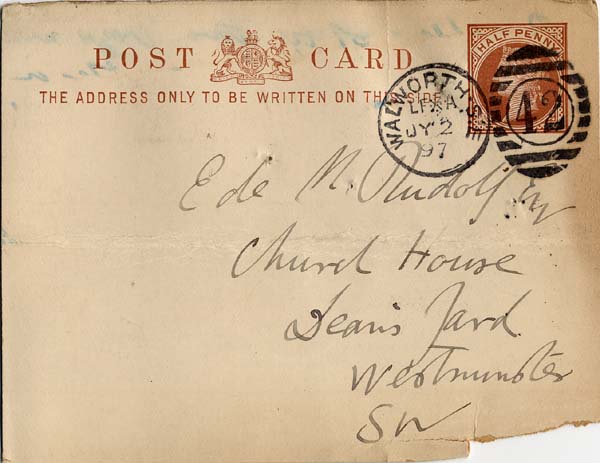 HALF PENNY
POST CARD
THE ADDRESS ONLY TO BE WRITTEN ON THIS SIDE.
WALWORTH
JY 2
97
42
Ede M. Rudolf Esq
Church House
Deans Yard
Westminster
SW